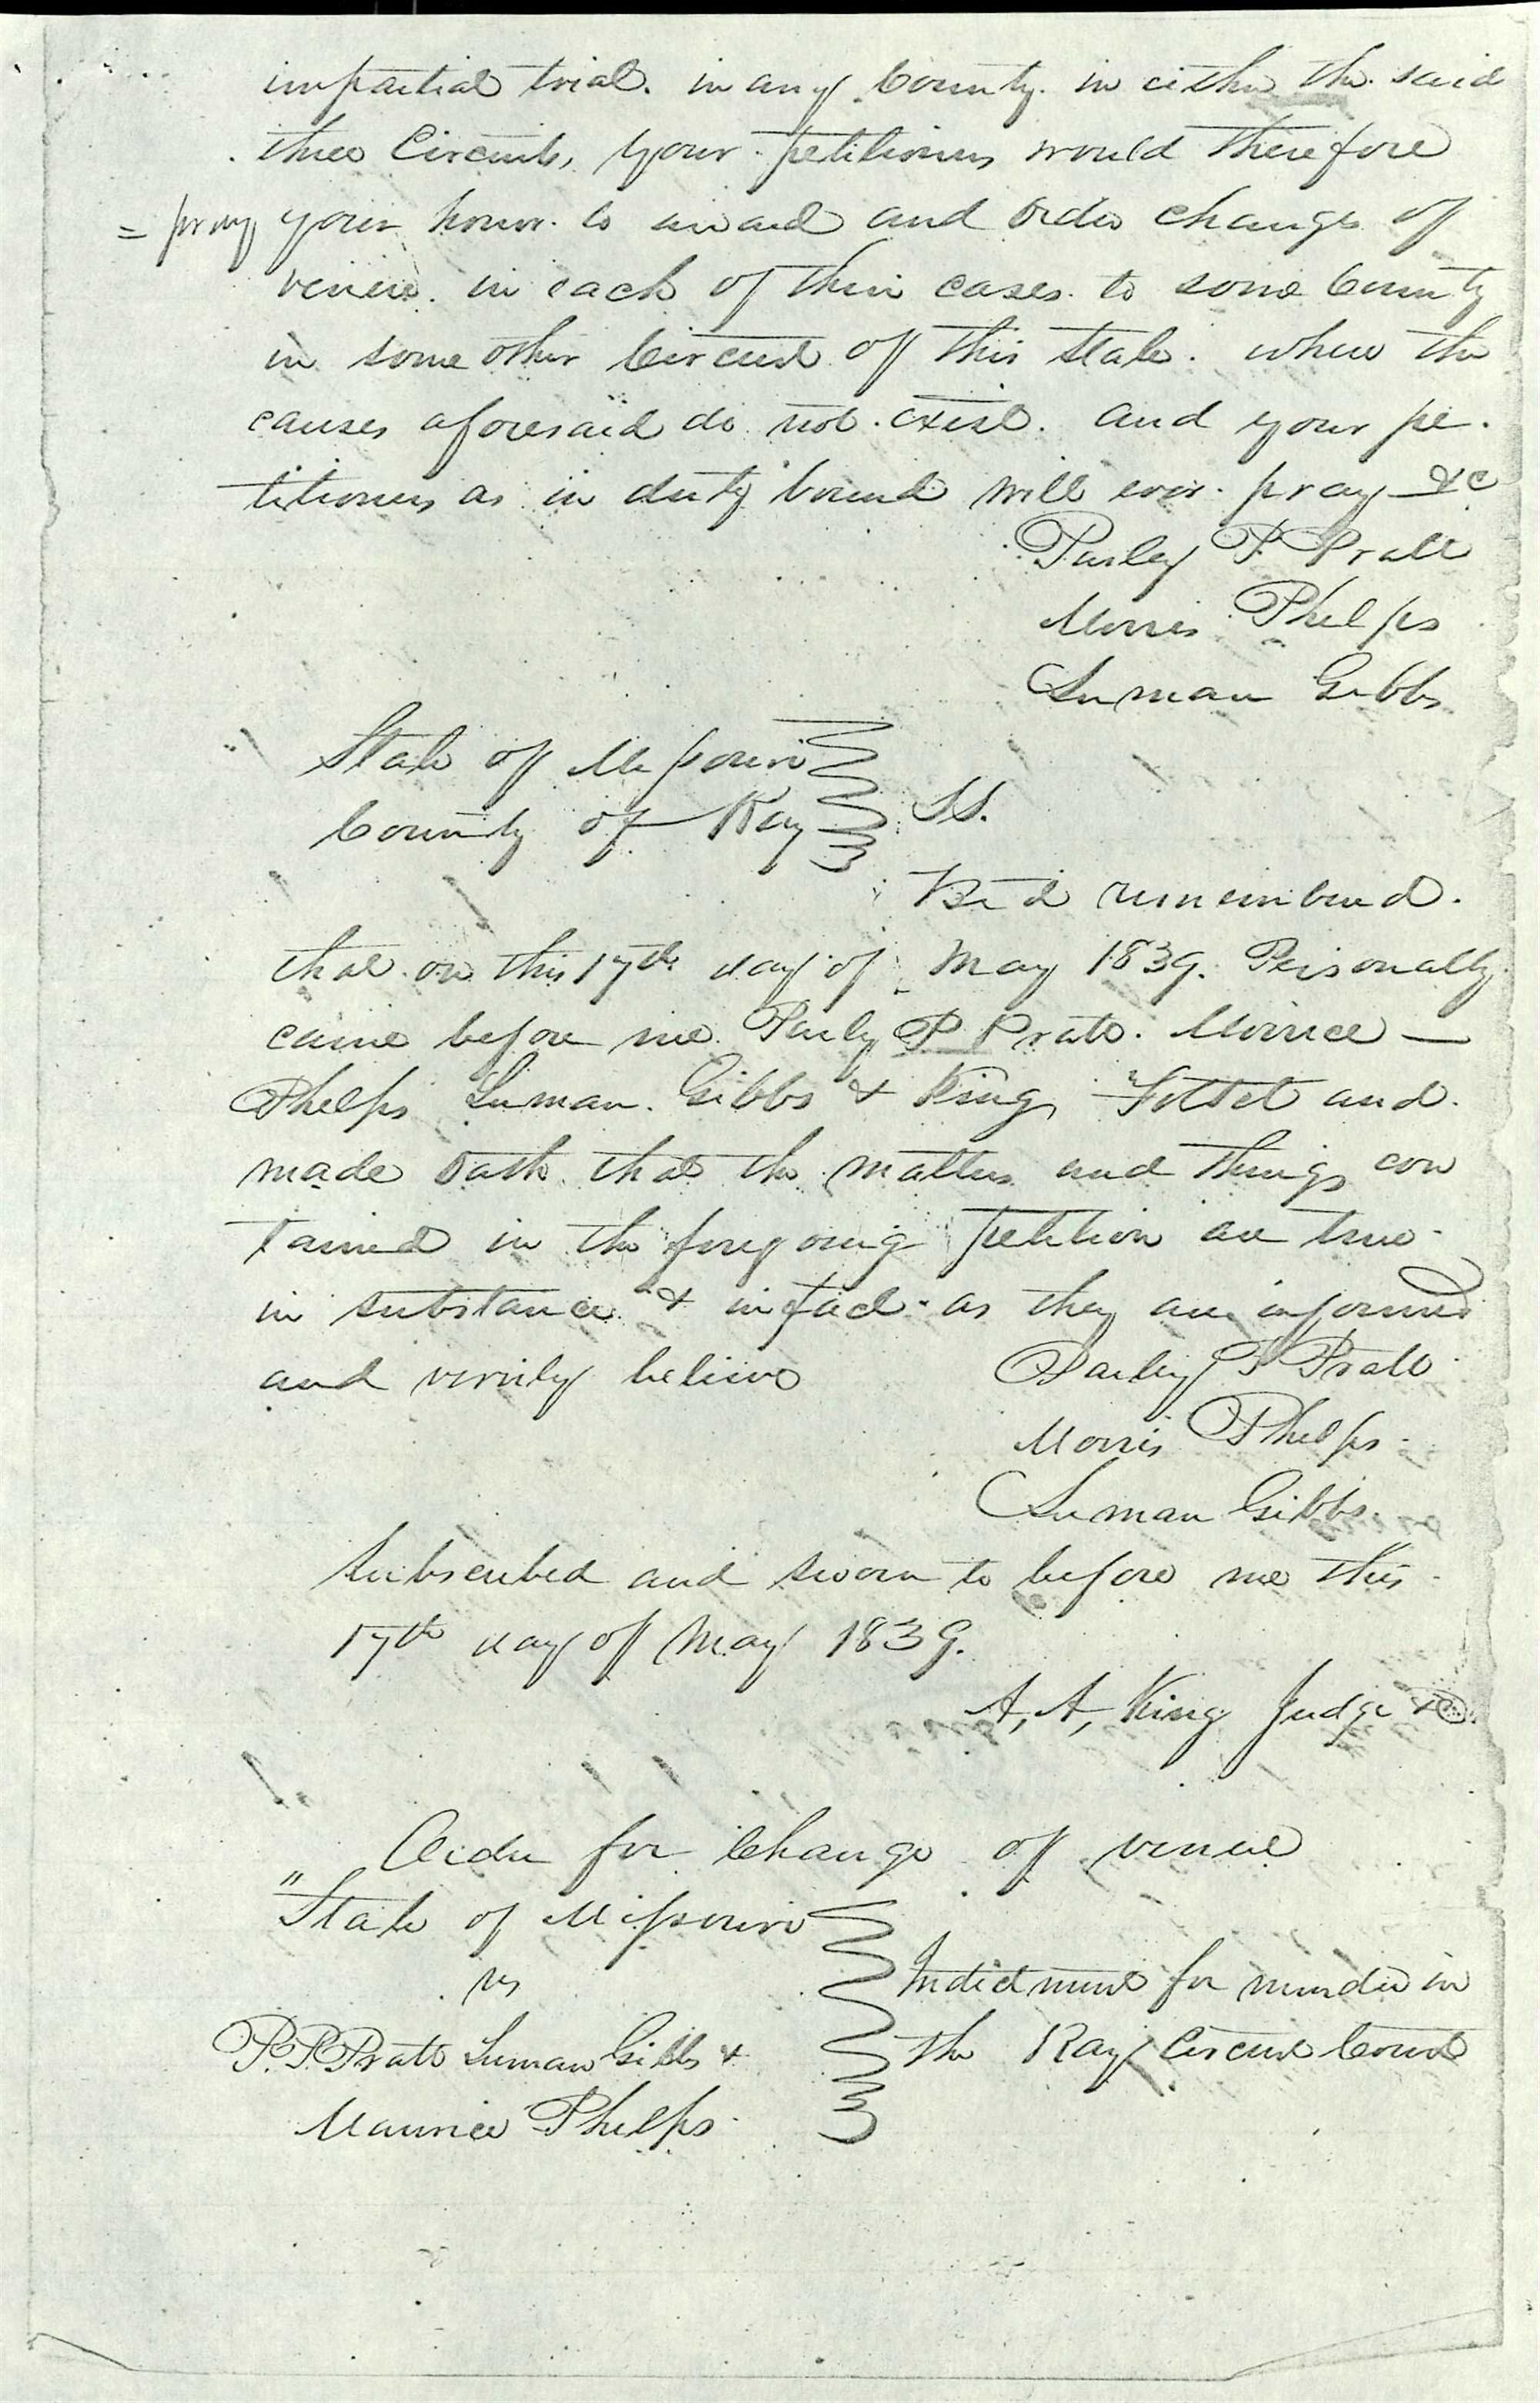 impartial trial. in any County. in either the said
three Circuits, your petitioners would therefore
= pray your honor. to award and order change of
venue. in each of their cases. to some County
in some other Circuit of this State. where the
causes aforesaid do not exist. and your pe-
titioners as in duty bound will ever pray &c
Parley P Pratt
Morris Phelps
Luman Gibbs
State of Missouri
County of Ray SS.
Be it remembered.
that on this 17th day of May 1839. Personally
came before me. Parly P Pratt. Morrice —
Phelps Luman. Gibbs & King Follet and.
made oath that the matters and things con
tained in the foregoing petition are true
in substance & in fact as they are informed
and verily believe
Parley P Pratt
Morris Phelps
Luman Gibbs.
Subscribed and sworn to before me this
17th day of May 1839.
A, A, King Judge &c.
Order for Change of venue
"State of Missouri
vs
P. P. Pratt Luman Gibbs &
Maurice Phelps
Indictment for murder in
the Ray Circuit Court